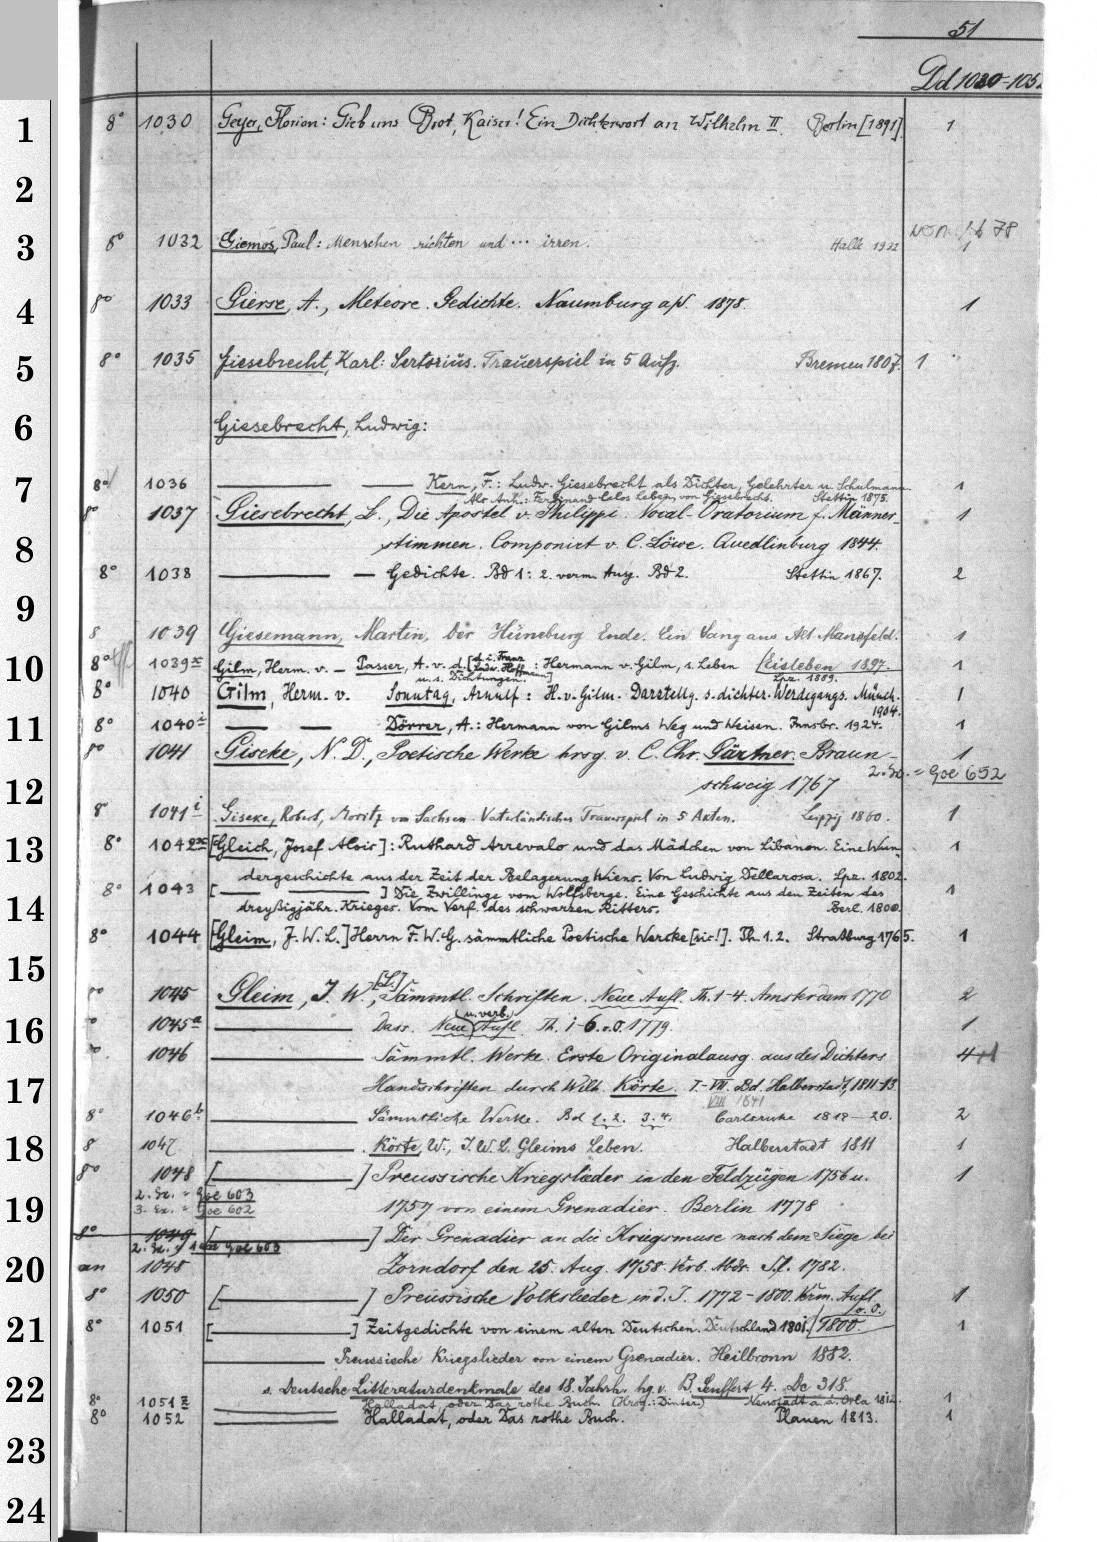 51
Dd 1030-1052
1 8° 1030 Geyer, Florian: Gieb uns Brot, Kaiser! Ein Dichterwort an Wilhelm II. Berlin [1891]. 1
2
3 8° 1032 Giemos, Paul: Menschen richten und ... irren. Halle 1922 1
4 8° 1033 Gierse, A., Meteore. Gedichte. Naumburg a/S. 1878. 1
5 8° 1035 Giesebrecht, Karl: Sertorius. Trauerspiel in 5 Aufz. Bremen 1807. 1
6 Giesebrecht, Ludwig:
7 8° 1036 Kern, F.: Ludw. Giesebrecht als Dichter, Gelehrter u. Schulmann 1
Als Anh.: Ferdinand Celos Leben, von Giesebrecht. Stettin 1875.
8° 1037 Giesebrecht, L., Die Apostel v. Philippi. Vocal-Oratorium f. Männer- 1
8 stimmen. Componirt v. C. Löwe. Quedlinburg 1844.
8° 1038 Gedichte. Bd 1: 2. verm. Ausg. Bd 2. Stettin 1867. 2
9
8 1039 Giesemann, Martin, Der Hüneburg Ende. Ein Sang aus Alt-Mansfeld. 1
[Eisleben 1897.
10 8° 1039 Gilm, Herm. v. – Passer, A. v. d. [d. i. Franz Ludw. Hoffmann]: Hermann v. Gilm, s. Leben 1
u. s. Dichtungen. Lpz. 1889.
8° 1040 Gilm, Herm. v. Sonntag, Arnulf: H. v. Gilm. Darstellg. s. dichter. Werdegangs. Münch. 1
1904.
11 8° 1040i Dörrer, A.: Hermann von Gilms Weg und Weisen. Innsbr. 1924. 1
8° 1041 Giseke, N. D., Poetische Werke hrsg. v. C. Chr. Gärtner. Braun- 1
2. Ex. = Goe 652
12 schweig 1767
8° 1041i Giseke, Robert, Moritz von Sachsen. Vaterländisches Trauerspiel in 5 Akten. Leipzig 1860. 1
13 8° 1042 [Gleich, Josef Alois]: Ruthard Arrevalo und das Mädchen von Libanon. Eine Wun- 1
dergeschichte aus der Zeit der Belagerung Wiens. Von Ludwig Dellarosa. Lpz. 1802.
8° 1043 [ ] Die Zwillinge vom Wolfsberge. Eine Geschichte aus den Zeiten des 1
14 dreyßigjähr. Krieges. Vom Verf. des schwarzen Ritters. Berl. 1800.
8° 1044 [Gleim, J. W. L.] Herrn F. W. G. sämmtliche Poetische Wercke [sic!]. Th. 1. 2. Straßburg 1765. 1
15
8° 1045 Gleim, J. W. [L.], Sämmtl. Schriften. Neue Aufl. Th. 1-4. Amsterdam 1770 2
16 1045a Dass. Neue (u. verb.) Aufl. Th. 1-6. o. O. 1779. 1
1046 Sämmtl. Werke. Erste Originalausg. aus des Dichters 4+1
17 Handschriften durch Wilh. Körte. I-VII. Bd. Halberstadt, 1811-13
VIII 1841
8° 1046b Sämmtliche Werke. Bd 1. 2. 3. 4. Carlsruhe 1819-20. 2
18 8 1047 Körte, W., J. W. L. Gleims Leben. Halberstadt 1811 1
8° 1048 [ ] Preussische Kriegslieder in den Feldzügen 1756 u. 1
2. Ex. = Goe 603
19 3. Ex. = Goe 602 1757 von einem Grenadier. Berlin 1778
8° 1049 [ ] Der Grenadier an die Kriegsmuse nach dem Siege bei
2. Ex. = Goe 603
20 an 1048 Zorndorf den 25. Aug. 1758. Verb. Abdr. S. l. 1782.
8° 1050 [ ] Preussische Volkslieder in d. J. 1772-1800. Verm. Aufl. 1
o. O.
21 8° 1051 [ ] Zeitgedichte von einem alten Deutschen. Deutschland 1801. 1800. 1
Preussische Kriegslieder von einem Grenadier. Heilbronn 1882.
22 s. Deutsche Litteraturdenkmale des 18. Jahrh. hg. v. B. Seuffert 4. Dc 318.
8° 1051z Halladat, oder Das rothe Buch. (Hrsg.: Dinter) Neustadt a. d. Orla 1812. 1
8° 1052 Halladat, oder Das rothe Buch. Plauen 1813. 1
23
24